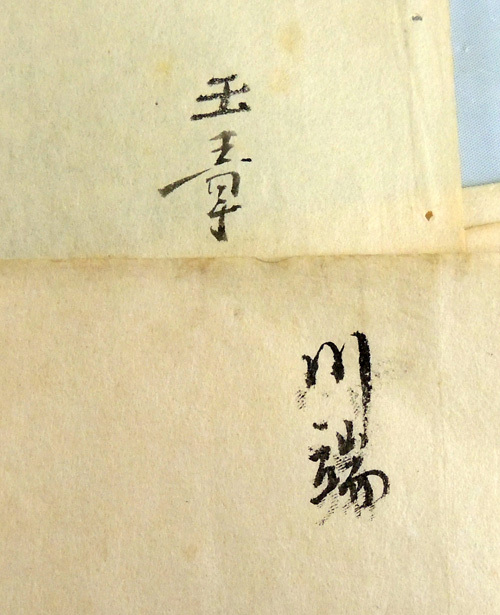 川端
玉章